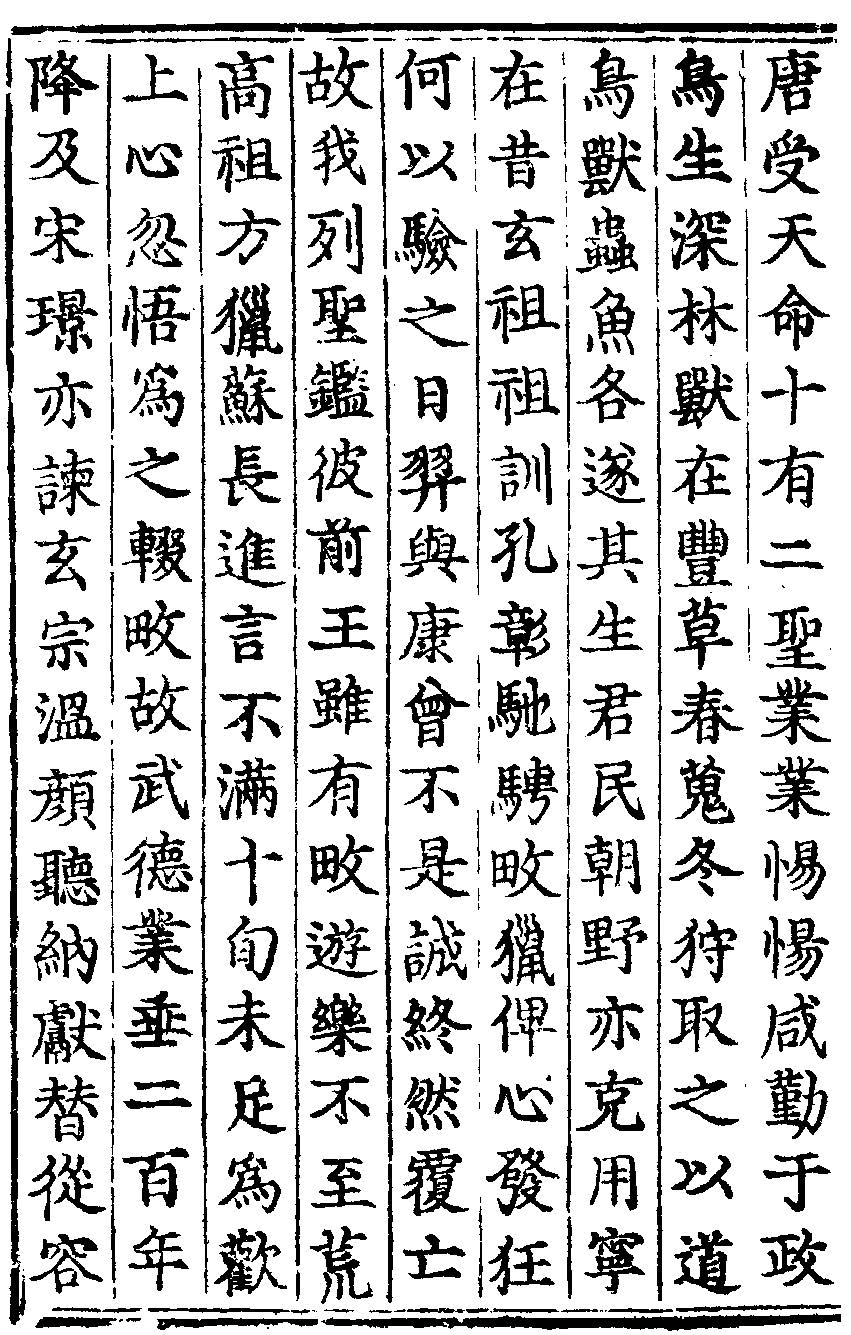 唐受天命十有二聖業業惕惕咸勤于政
鳥生深林獸在豐草春蒐冬狩取之以道
鳥獸蟲魚各遂其生君民朝野亦克用寧
在昔玄祖祖訓孔彰馳騁畋獵俾心發狂
何以驗之曰羿與康曾不是誡終然覆亡
故我列聖鑑彼前王雖有畋遊樂不至荒
高祖方獵蘇長進言不滿十旬未足爲歡
上心忽悟爲之輟畋故武德業垂二百年
降及宋璟亦諫玄宗溫顔聽納獻替從容